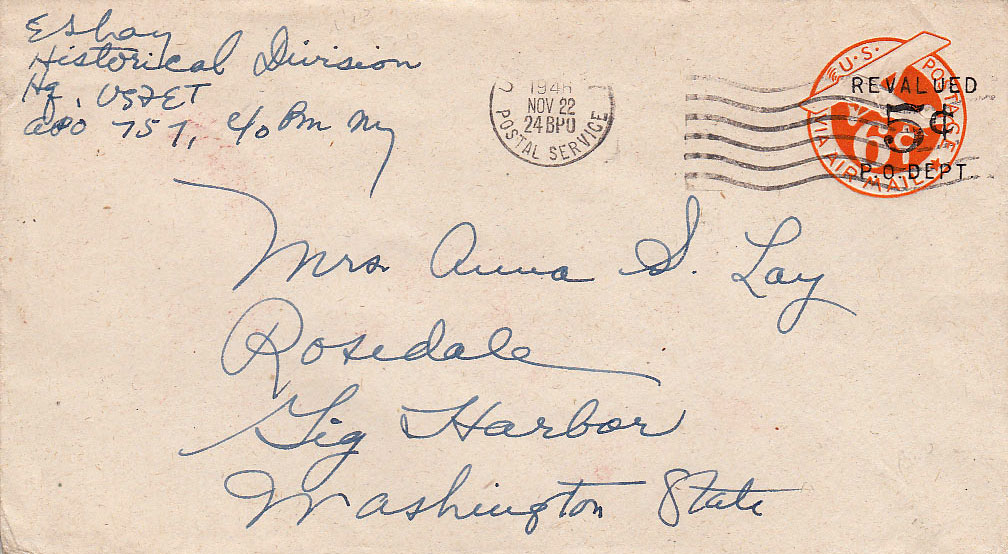 E Lay
Historical Division
Hq, USFET
APO 757, c/o Pm Ny
1946
NOV 22
24 BPO
POSTAL SERVICE
U.S. POSTAGE
VIA AIR MAIL
6¢
REVALUED
5¢
P.O. DEPT.
Mrs. Anna S. Lay
Rosedale
Gig Harbor
Washington State